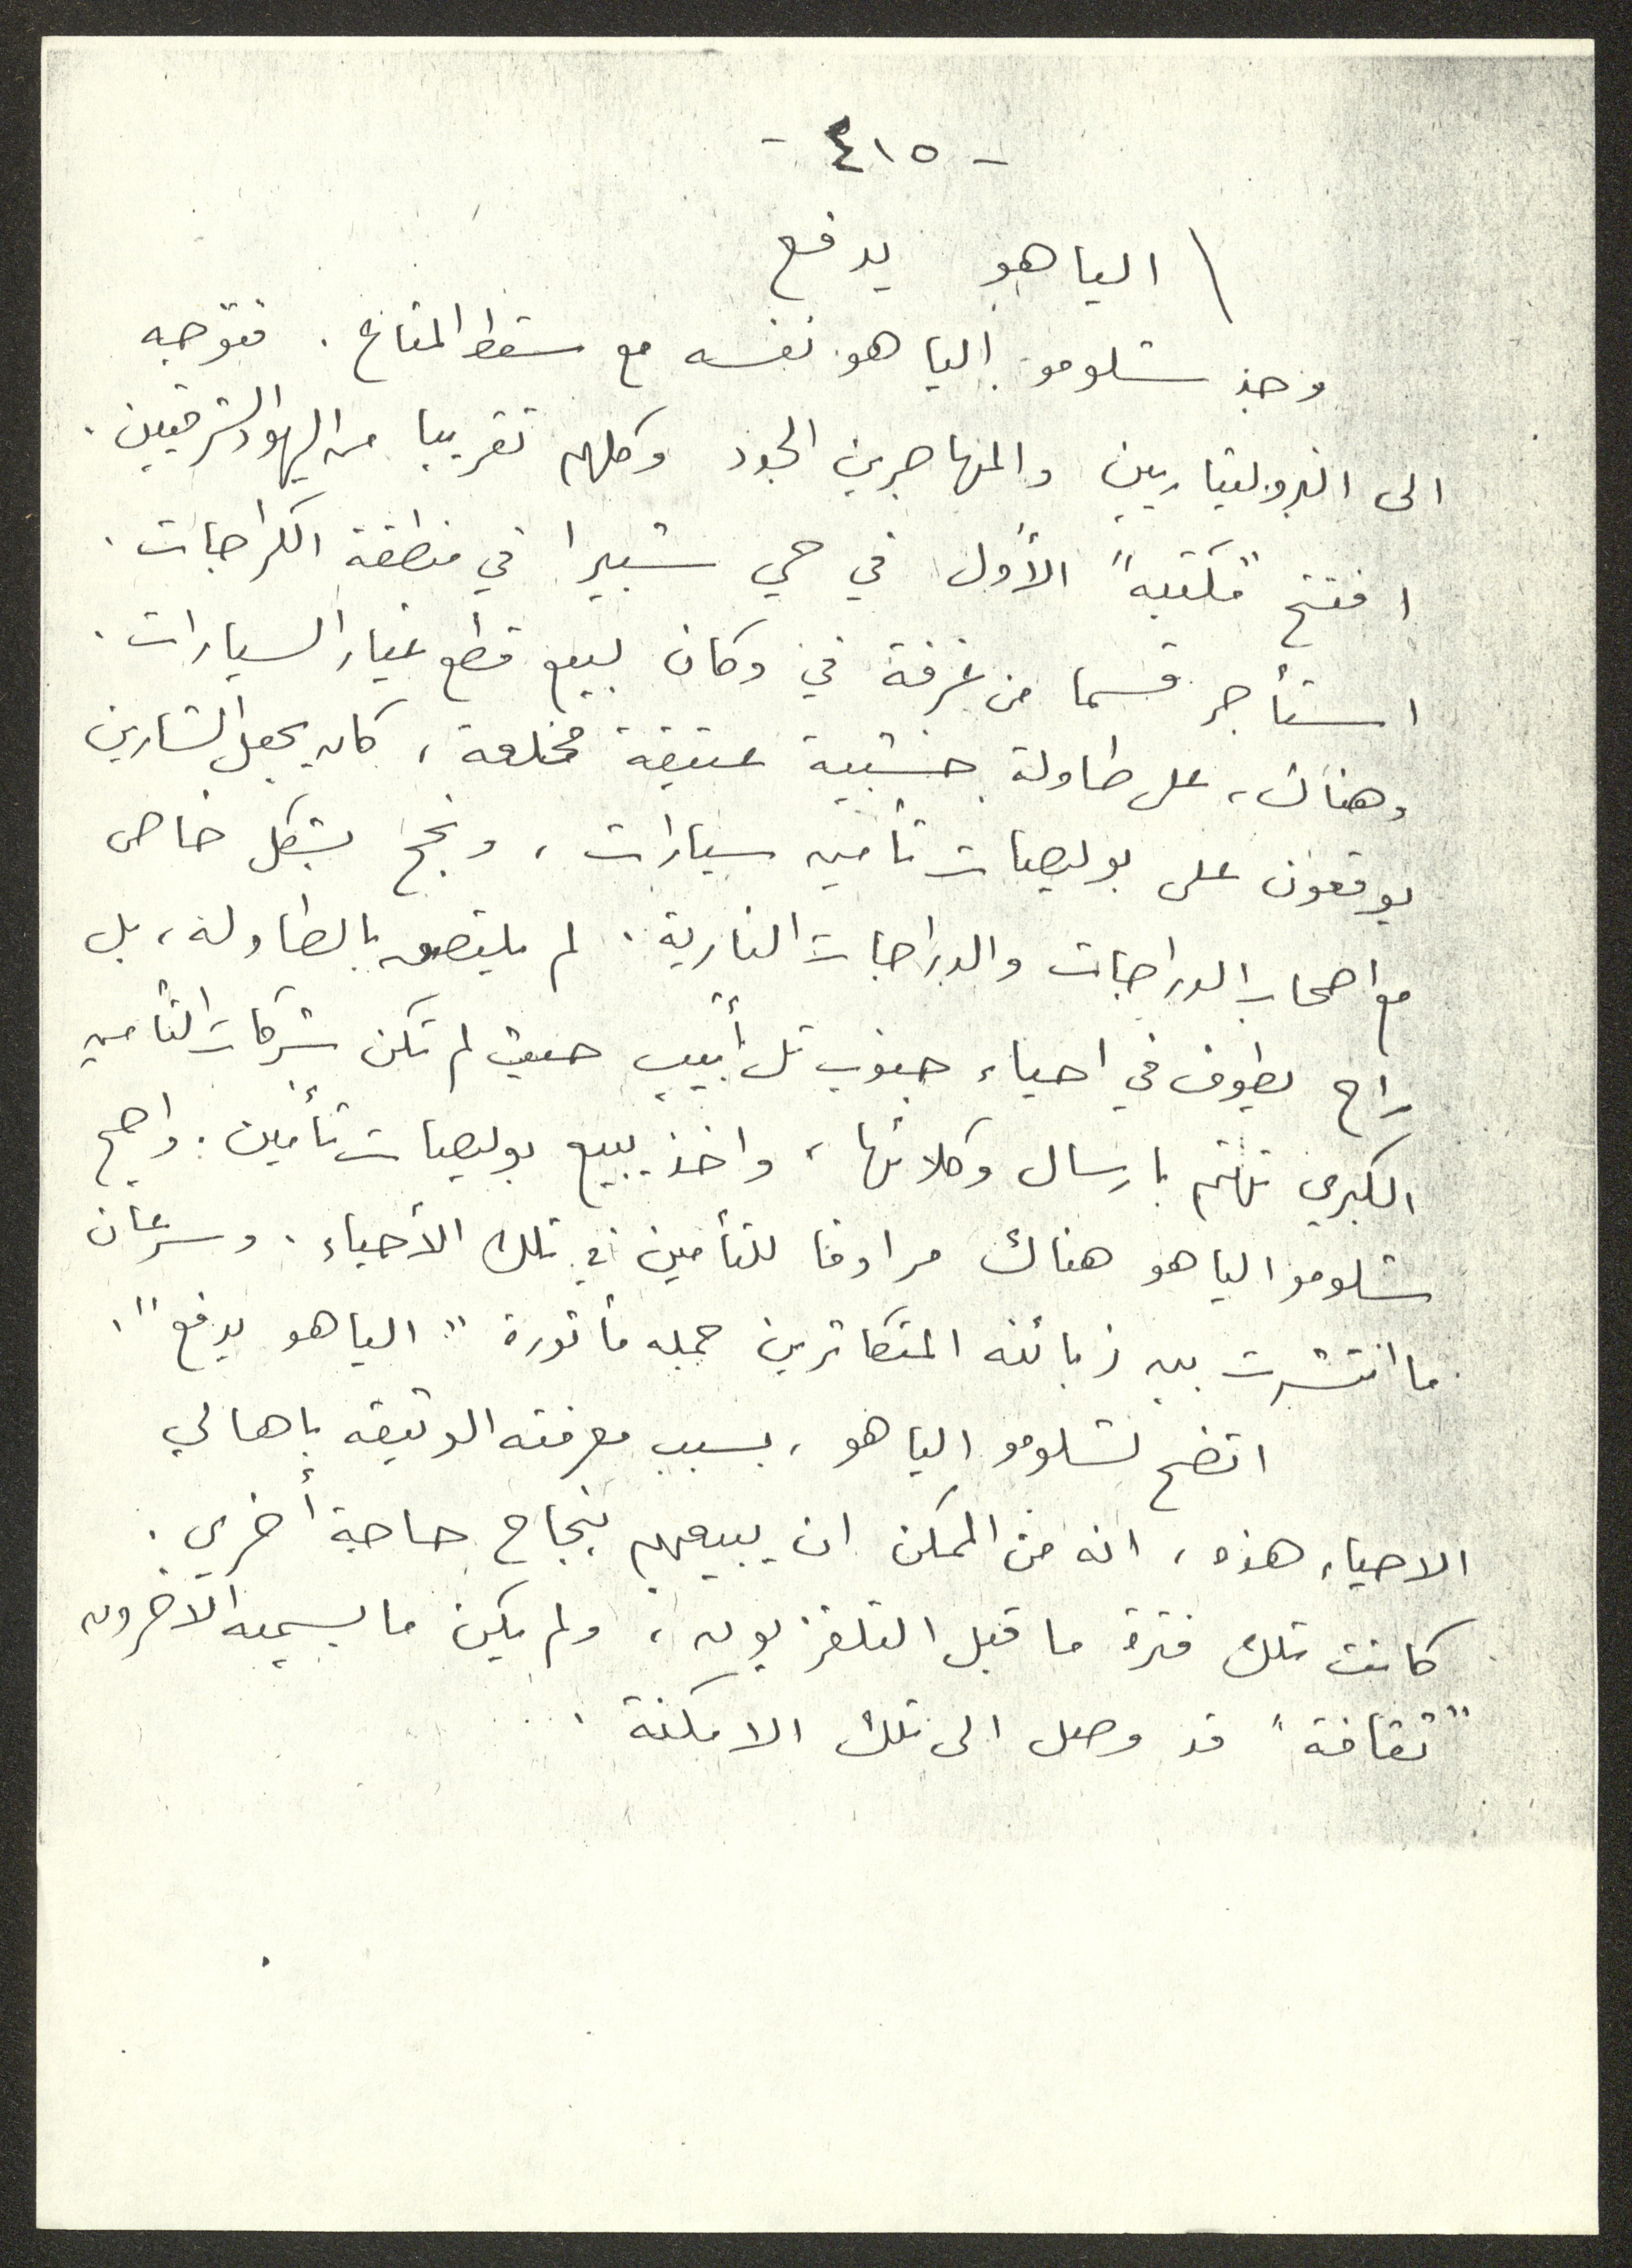 - ٤١٥ -
\ الياهو يدفع
وجد شلومو الياهو نفسه مع سقط المتاع. فتوجه
الى البروليتاريين والمهاجرين الجدد وكلهم تقريبا من اليهود الشرقيين.
افتتح "مكتبه" الأول في حي شبيرا في منطقة الكراجات.
استأجر قسما من غرفة في دكان لبيع قطع غيار السيارات.
وهناك، على طاولة خشبية عتيقة مخلعة، كان يجعل الشارين
يوقعون على بوليصات تأمين سيارات، ونجح بشكل خاص
مع اصحاب الدراجات والدراجات النارية. لم يلتصق بالطاولة، بل
راح يطوف في احياء جنوب تل أبيب حيث لم تكن شركات التأمين
الكبرى تهتم بارسال وكلائها، واخذ يبيع بوليصات تأمين. واصبح
شلومو الياهو هناك مرادفا للتأمين في تلك الأحياء. وسرعان
ما انتشرت بين زبائنه المتكاثرين جمله مأثورة "الياهو يدفع".
اتضح لشلومو الياهو، بسبب معرفته الوثيقه باهالي
الاحياء هذه، انه من الممكن ان يبيعهم بنجاح حاجة أخرى.
كانت تلك فترة ما قبل التلفزيون، ولم يكن ما يسميه الآخرون
"ثقافة" قد وصل الى تلك الامكنة.